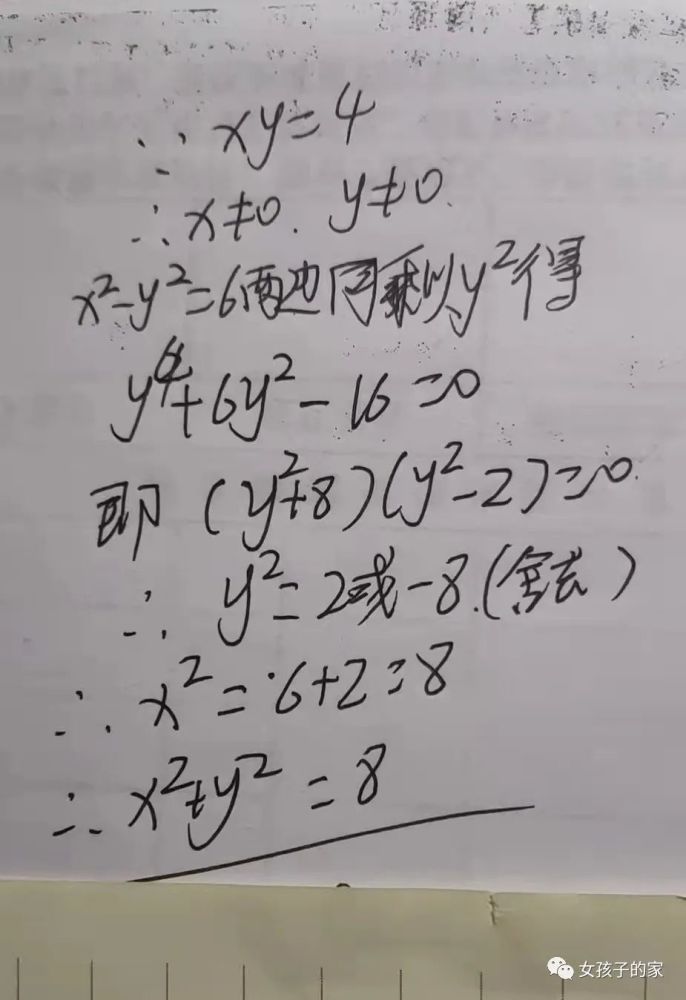 ∵ xy=4
∴ x≠0. y≠0.
x²-y²=6两边同乘以y²得
y⁴+6y²-16=0
即 (y²+8)(y²-2)=0.
∴ y²=2或-8.(舍去)
∴ x²=6+2=8
∴ x²+y²=8
女孩子的家